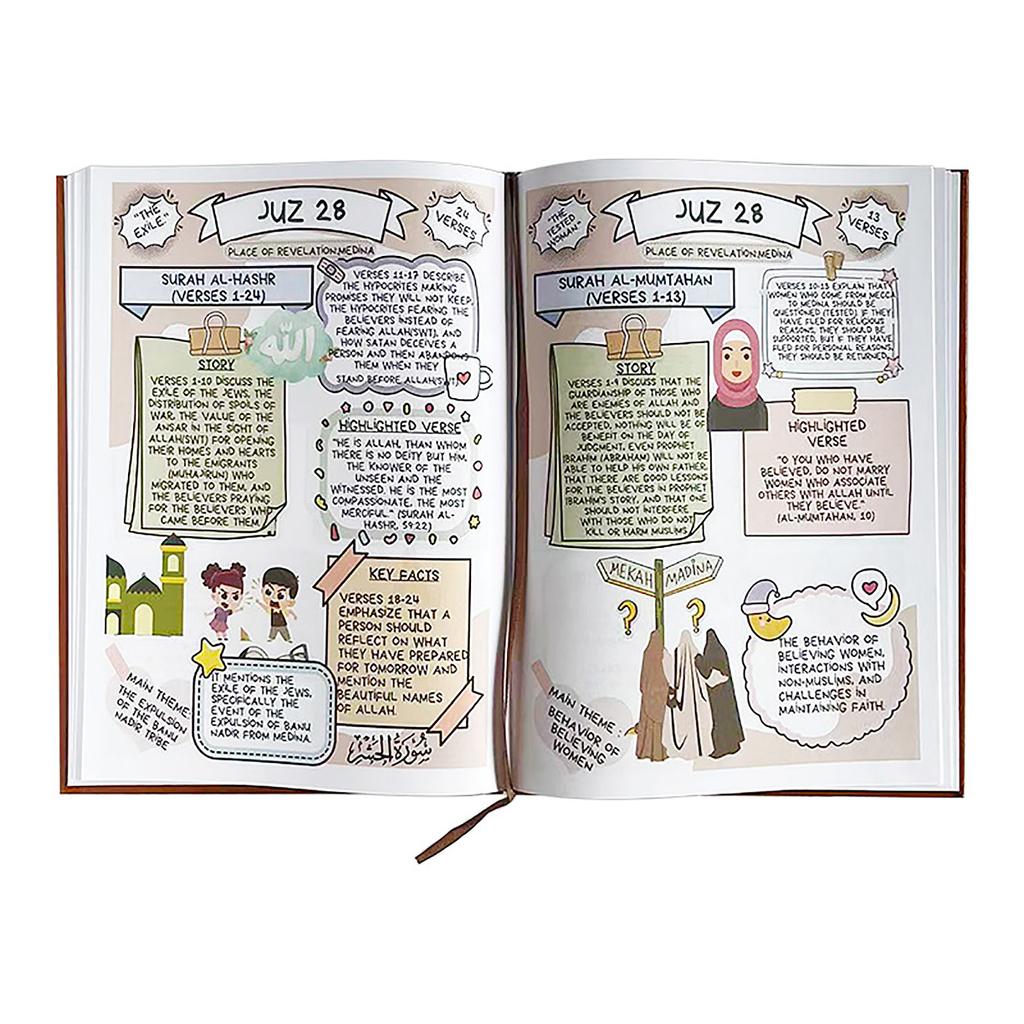 "THE
EXILE."
JUZ 28
24
VERSES
PLACE OF REVELATION:MEDINA
SURAH AL-HASHR
(VERSES 1-24)
VERSES 11-17 DESCRIBE
THE HYPOCRITES MAKING
PROMISES THEY WILL NOT KEEP,
THE HYPOCRITES FEARING THE
BELIEVERS INSTEAD OF
FEARING ALLAH(SWT), AND
HOW SATAN DECEIVES A
PERSON AND THEN ABANDONS
THEM WHEN THEY
STAND BEFORE ALLAH(SWT).
الله
STORY
VERSES 1-10 DISCUSS THE
EXILE OF THE JEWS, THE
DISTRIBUTION OF SPOILS OF
WAR, THE VALUE OF THE
ANSAR IN THE SIGHT OF
ALLAH(SWT) FOR OPENING
THEIR HOMES AND HEARTS
TO THE EMIGRANTS
(MUHAJIRUN) WHO
MIGRATED TO THEM, AND
THE BELIEVERS PRAYING
FOR THE BELIEVERS WHO
CAME BEFORE THEM.
HIGHLIGHTED VERSE
"HE IS ALLAH, THAN WHOM
THERE IS NO DEITY BUT HIM,
THE KNOWER OF THE
UNSEEN AND THE
WITNESSED. HE IS THE MOST
COMPASSIONATE, THE MOST
MERCIFUL." (SURAH AL-
HASHR, 59:22)
KEY FACTS
VERSES 18-24
EMPHASIZE THAT A
PERSON SHOULD
REFLECT ON WHAT
THEY HAVE PREPARED
FOR TOMORROW AND
MENTION THE
BEAUTIFUL NAMES
OF ALLAH.
MAIN THEME:
THE EXPULSION
OF THE BANU
NADIR TRIBE
IT MENTIONS THE
EXILE OF THE JEWS,
SPECIFICALLY THE
EVENT OF THE
EXPULSION OF BANU
NADIR FROM MEDINA.
سورة الحشر
"THE
TESTED
WOMAN"
JUZ 28
13
VERSES
PLACE OF REVELATION:MEDINA
SURAH AL-MUMTAHAN
(VERSES 1-13)
VERSES 10-13 EXPLAIN THAT
WOMEN WHO COME FROM MECCA
TO MEDINA SHOULD BE
QUESTIONED (TESTED). IF THEY
HAVE FLED FOR RELIGIOUS
REASONS, THEY SHOULD BE
SUPPORTED, BUT IF THEY HAVE
FLED FOR PERSONAL REASONS,
THEY SHOULD BE RETURNED.
STORY
VERSES 1-9 DISCUSS THAT THE
GUARDIANSHIP OF THOSE WHO
ARE ENEMIES OF ALLAH AND
THE BELIEVERS SHOULD NOT BE
ACCEPTED, NOTHING WILL BE OF
BENEFIT ON THE DAY OF
JUDGMENT, EVEN PROPHET
IBRAHIM (ABRAHAM) WILL NOT BE
ABLE TO HELP HIS OWN FATHER,
THAT THERE ARE GOOD LESSONS
FOR THE BELIEVERS IN PROPHET
IBRAHIM'S STORY, AND THAT ONE
SHOULD NOT INTERFERE
WITH THOSE WHO DO NOT
KILL OR HARM MUSLIMS.
HIGHLIGHTED
VERSE
"O YOU WHO HAVE
BELIEVED, DO NOT MARRY
WOMEN WHO ASSOCIATE
OTHERS WITH ALLAH UNTIL
THEY BELIEVE."
(AL-MUMTAHAN, 10)
MEKAH MADINA
? ?
MAIN THEME:
BEHAVIOR OF
BELIEVING
WOMEN
THE BEHAVIOR OF
BELIEVING WOMEN,
INTERACTIONS WITH
NON-MUSLIMS, AND
CHALLENGES IN
MAINTAINING FAITH.